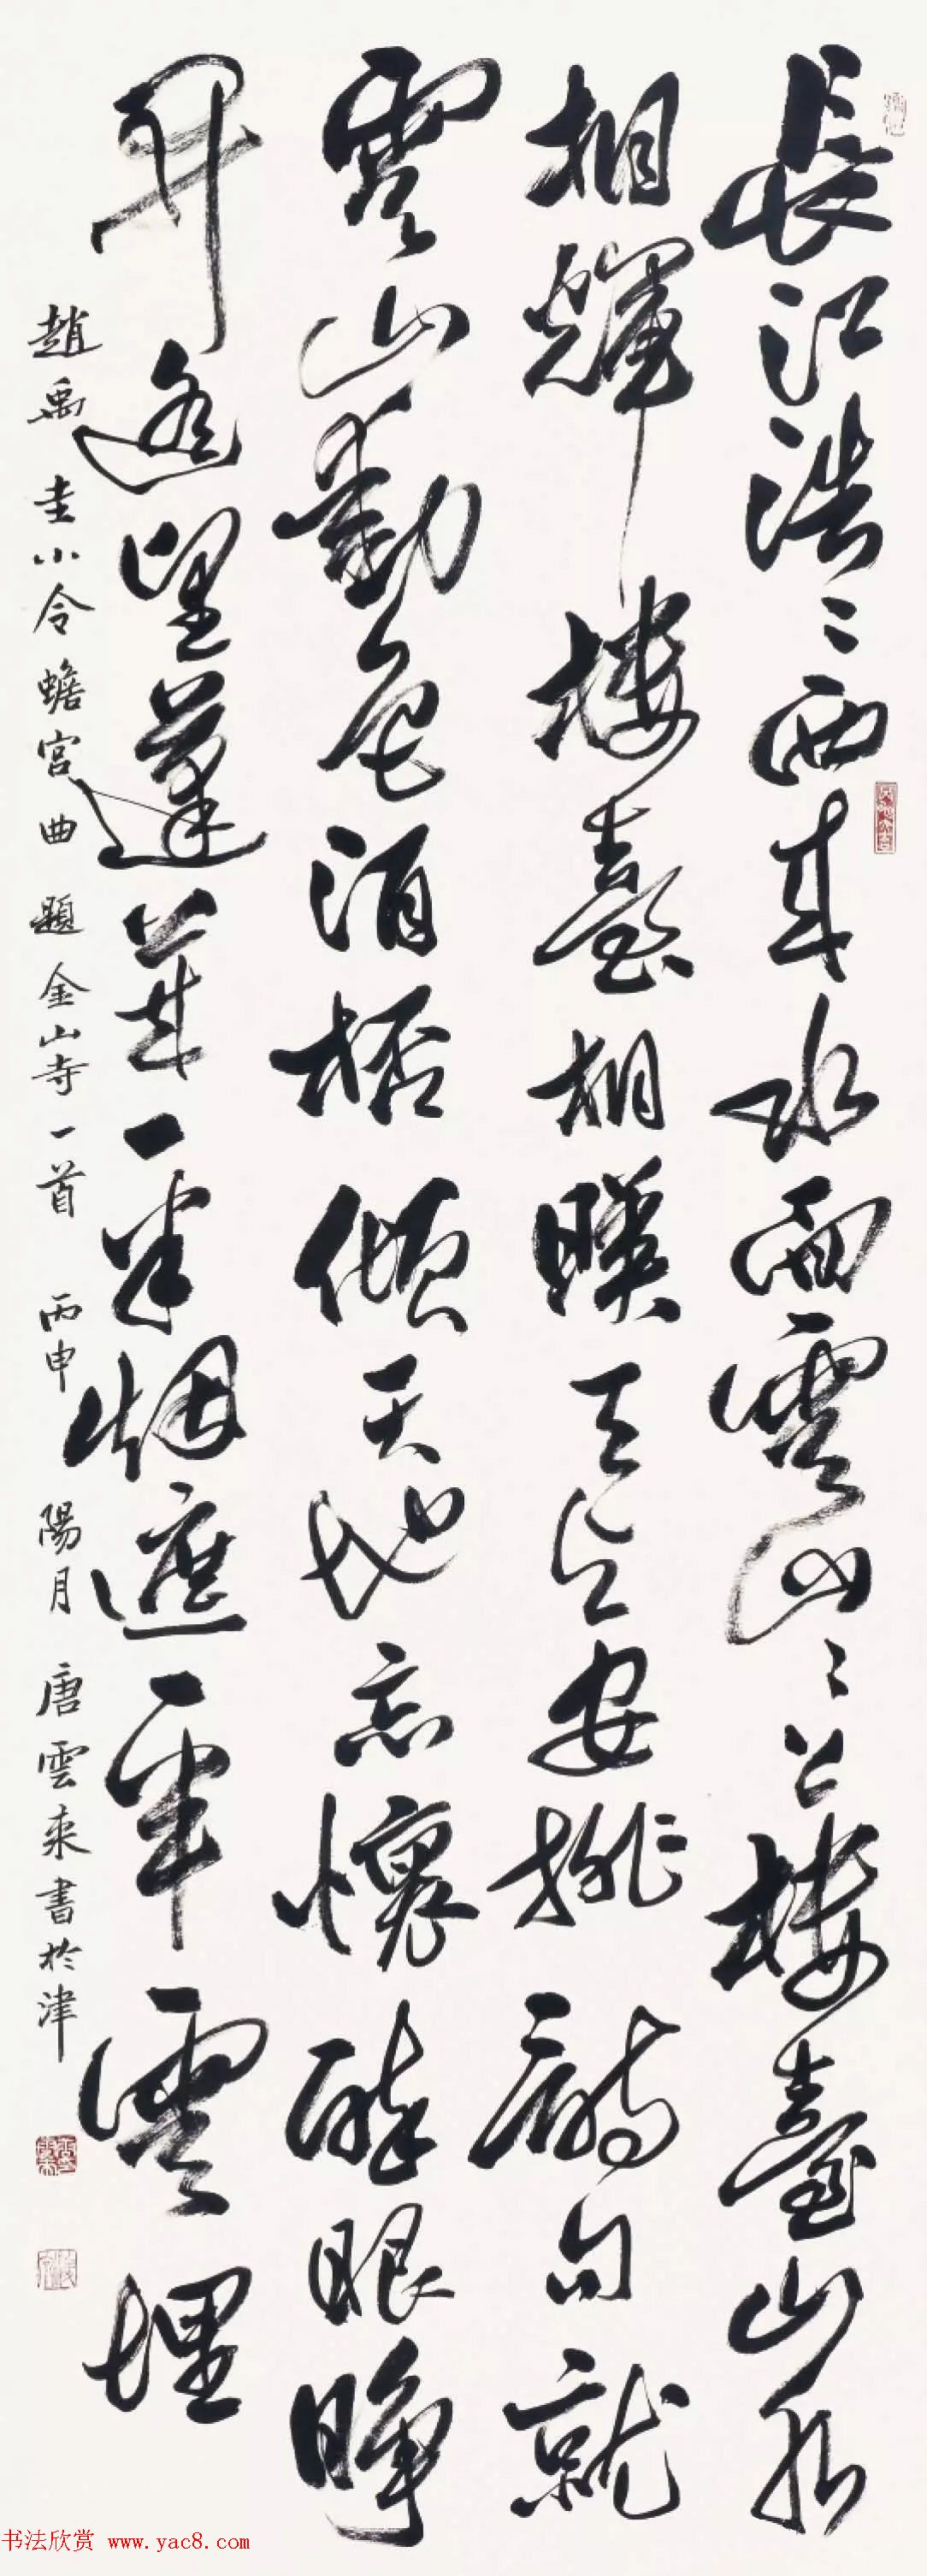 長江浩〻西来水面雲山〻上樓臺山水
相輝樓臺相暎天与安排詩句就
雲山動色酒桮傾天地忘懷醉眼睁
開遥望蓬萊一半烟遮一半雲埋
趙禹圭小令蟾宫曲 題金山寺一首 丙申陽月唐雲来書於津
书法欣赏 www.yac8.com